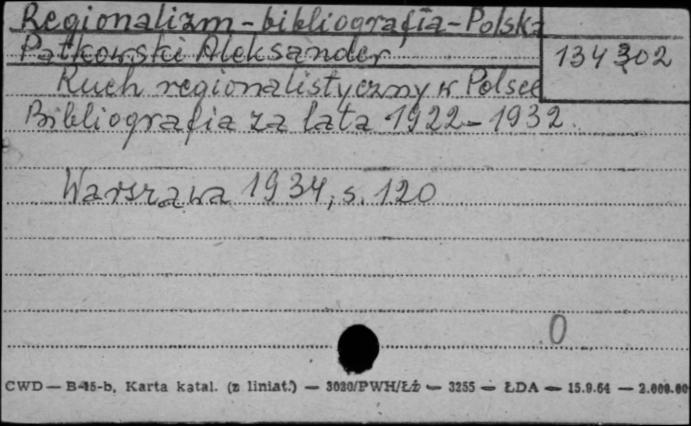 Regionalizm - bibliografia - Polska
Patkowski Aleksander
134302
Ruch regionalistyczny w Polsce
Bibliografia za lata 1922 - 1932.
Warszawa 1934, s. 120
0
CWD — B-15-b, Karta katal. (z liniat.) — 3020/PWH/Łż — 3255 — ŁDA — 15.9.64 — 2.000.00